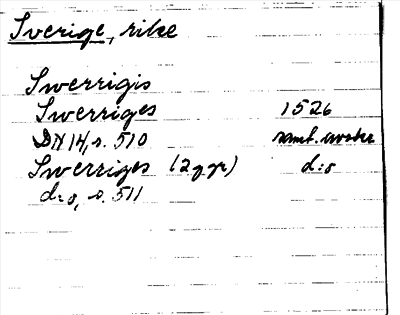 Sverige, rike
Swerrigis
Swerriges 1526
DN 14, s. 510 samt. avskr
Swerriges (2 ggr) d:o
d:o, s. 511